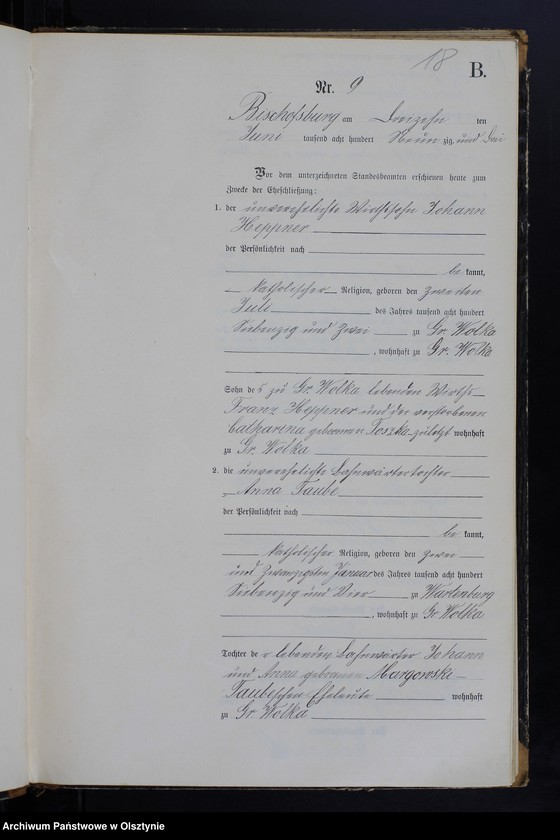 18
B.
Nr. 9
Bischofsburg am Dreizehn ten
Juni tausend acht hundert Neun zig und Drei
Vor dem unterzeichneten Standesbeamten erschienen heute zum
Zwecke der Eheschließung:
1. der unverehelichte Wirthssohn Johann
Heppner
der Persönlichkeit nach
be kannt,
katholischer Religion, geboren den Zweiten
Juli des Jahres tausend acht hundert
Siebenzig und Zwei zu Gr. Wolka
, wohnhaft zu Gr. Wolka
Sohn des zu Gr. Wolka lebenden Wirths
Franz Heppner und der verstorbenen
Catharina geborenen Toszka zuletzt wohnhaft
zu Gr. Wolka
2. die unverehelichte Bahnwärtertochter
Anna Taube
der Persönlichkeit nach
be kannt,
katholischer Religion, geboren den Zwei
und Zwanzigsten Januar des Jahres tausend acht hundert
Siebenzig und Vier zu Wartenburg
, wohnhaft zu Gr Wolka
Tochter der lebenden Bahnwärter Johann
und Anna geborenen Margowski
Taubeschen Eheleute wohnhaft
zu Gr. Wolka
Archiwum Państwowe w Olsztynie